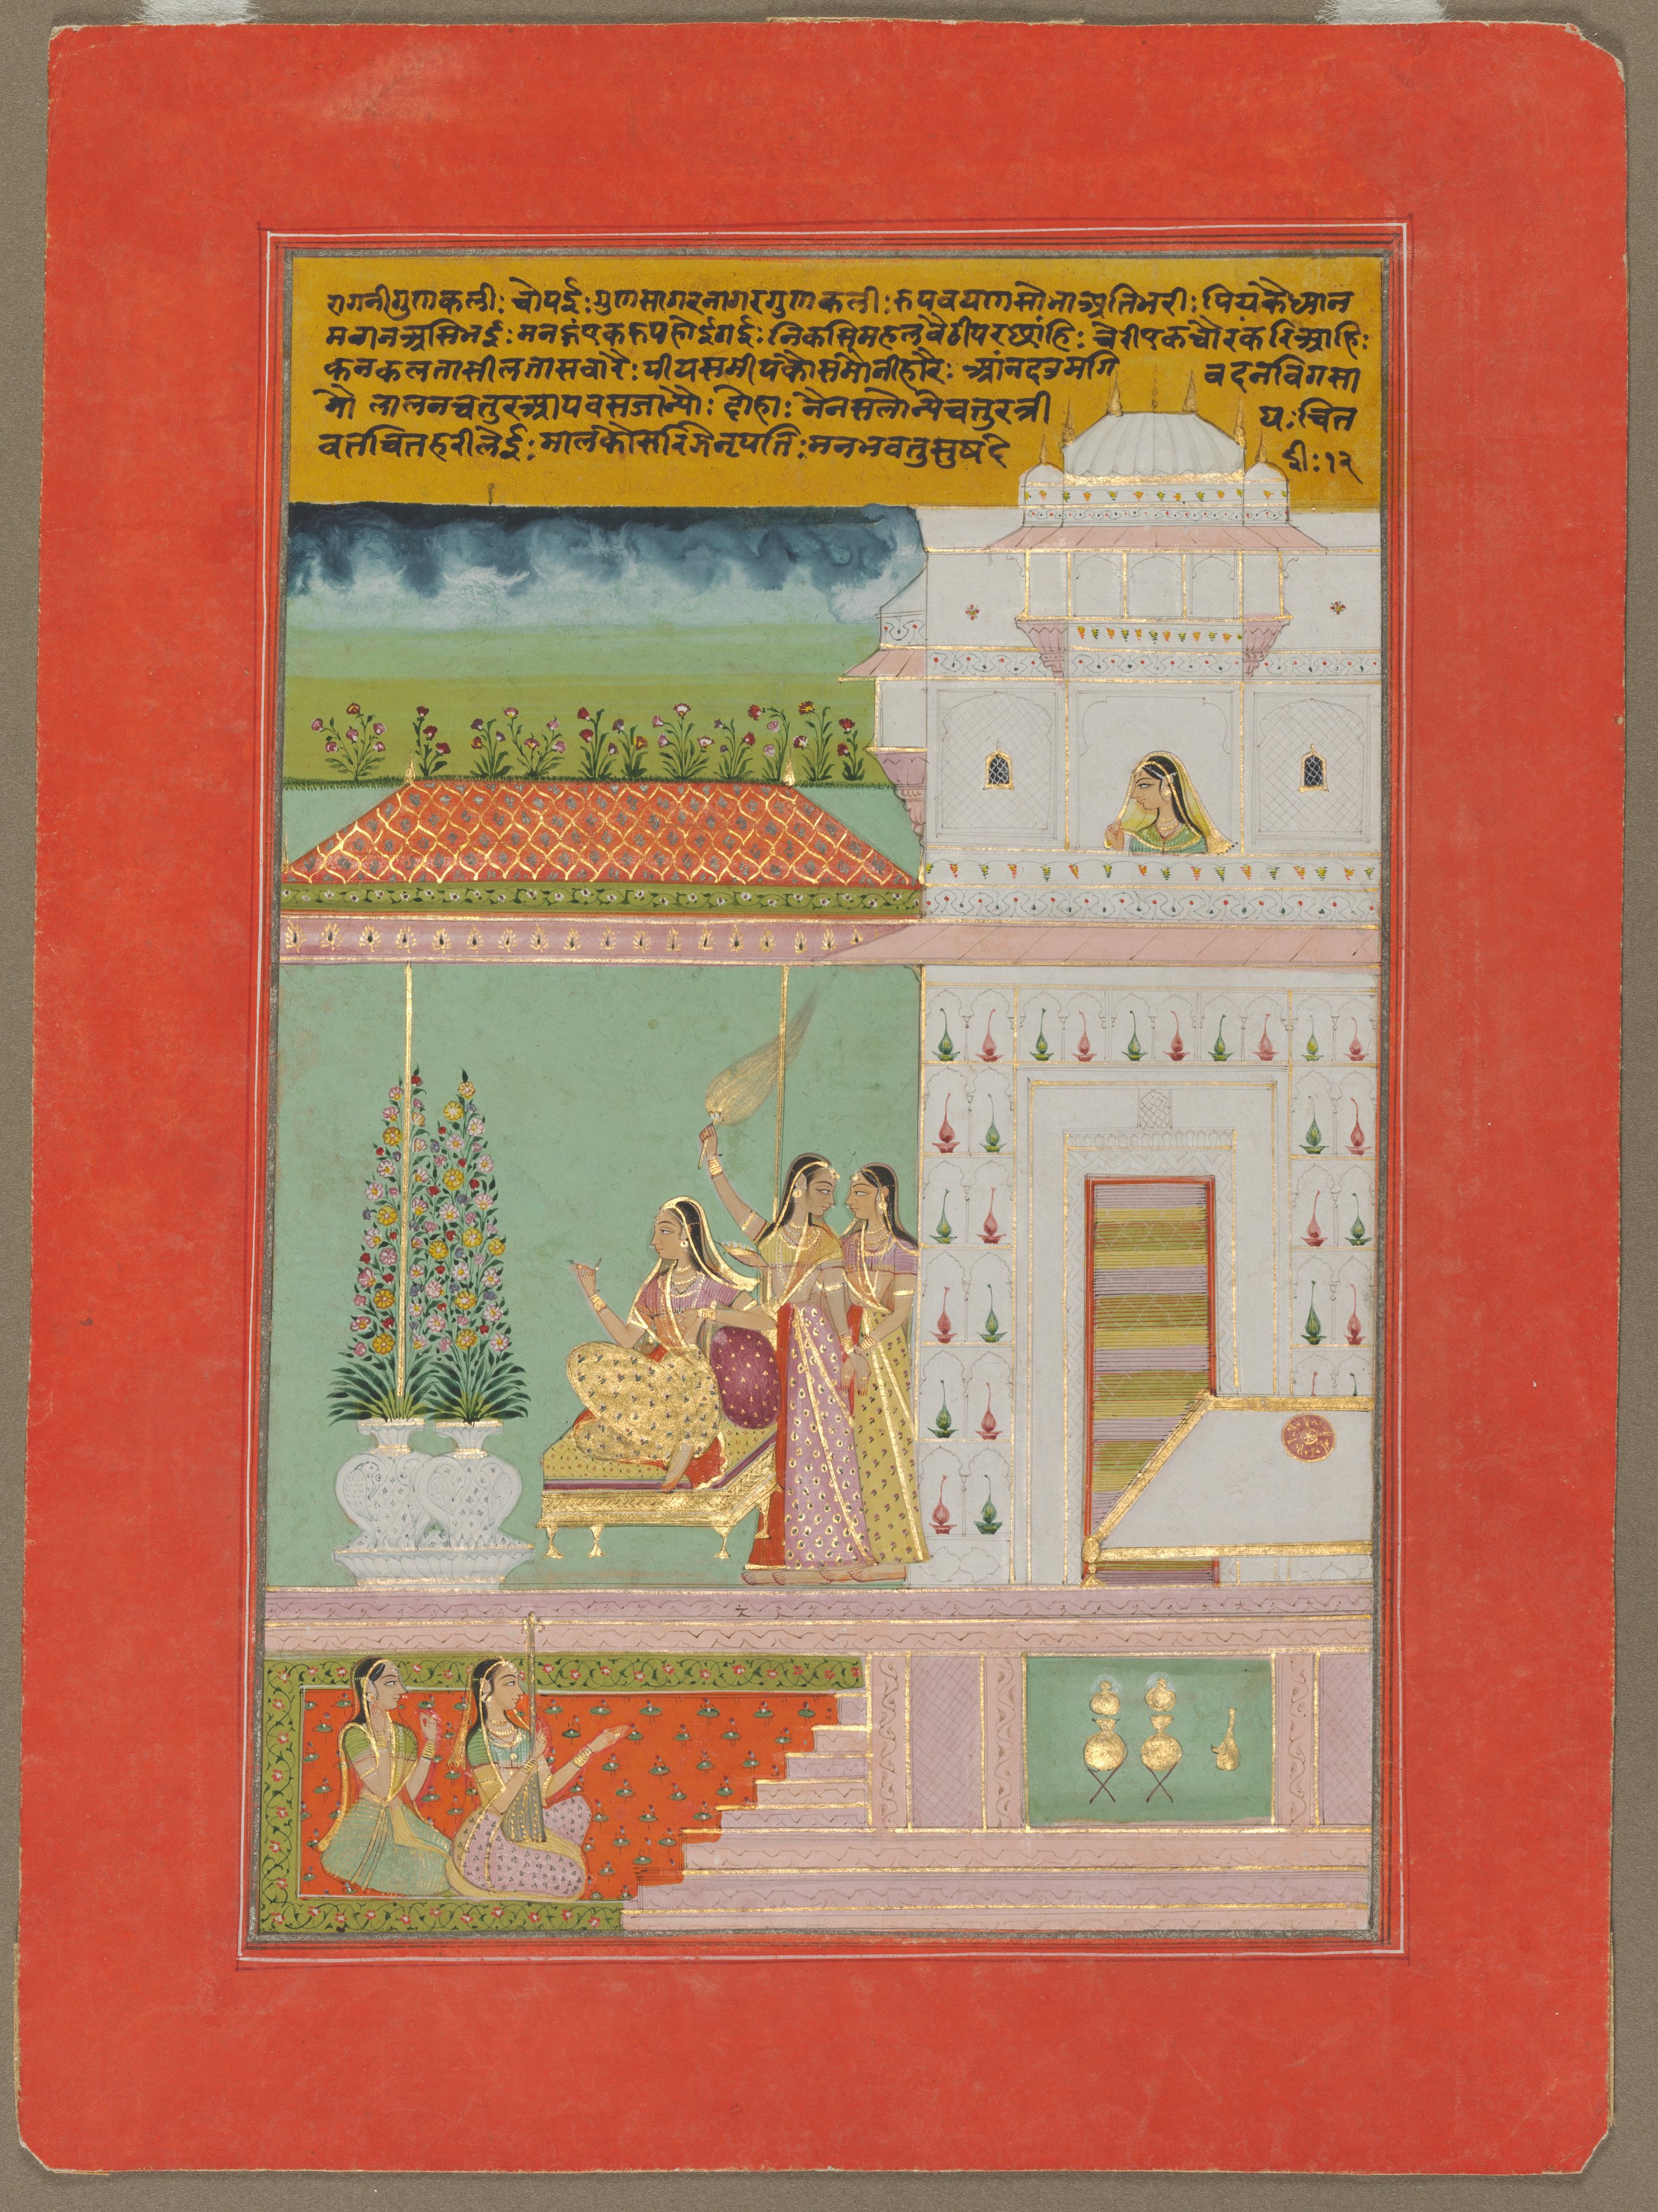 रागनीगुणकली: चोपई: गुणसागरनागरगुणकली: रुपवयणसोभाअतिभरी: पियकेध्यान
मगनअसिभई: मनहुंएकरुपहोईगई: निकसिमहलबैठीपरछांहि: चेरीएकचौरकरिआहि:
कनकलतासीलतासवारै: पीयसमीप सेमोनीहारै: आंनदउमगि वदनविगसा
नो लालनचतुरआपवसजान्यौ: दोहा: नेनसलोन्येचतुरत्री य: चित
वतचितहरीलेई: मालकोसरिझेनृपति: मनभवतुसुषदे ई: १२